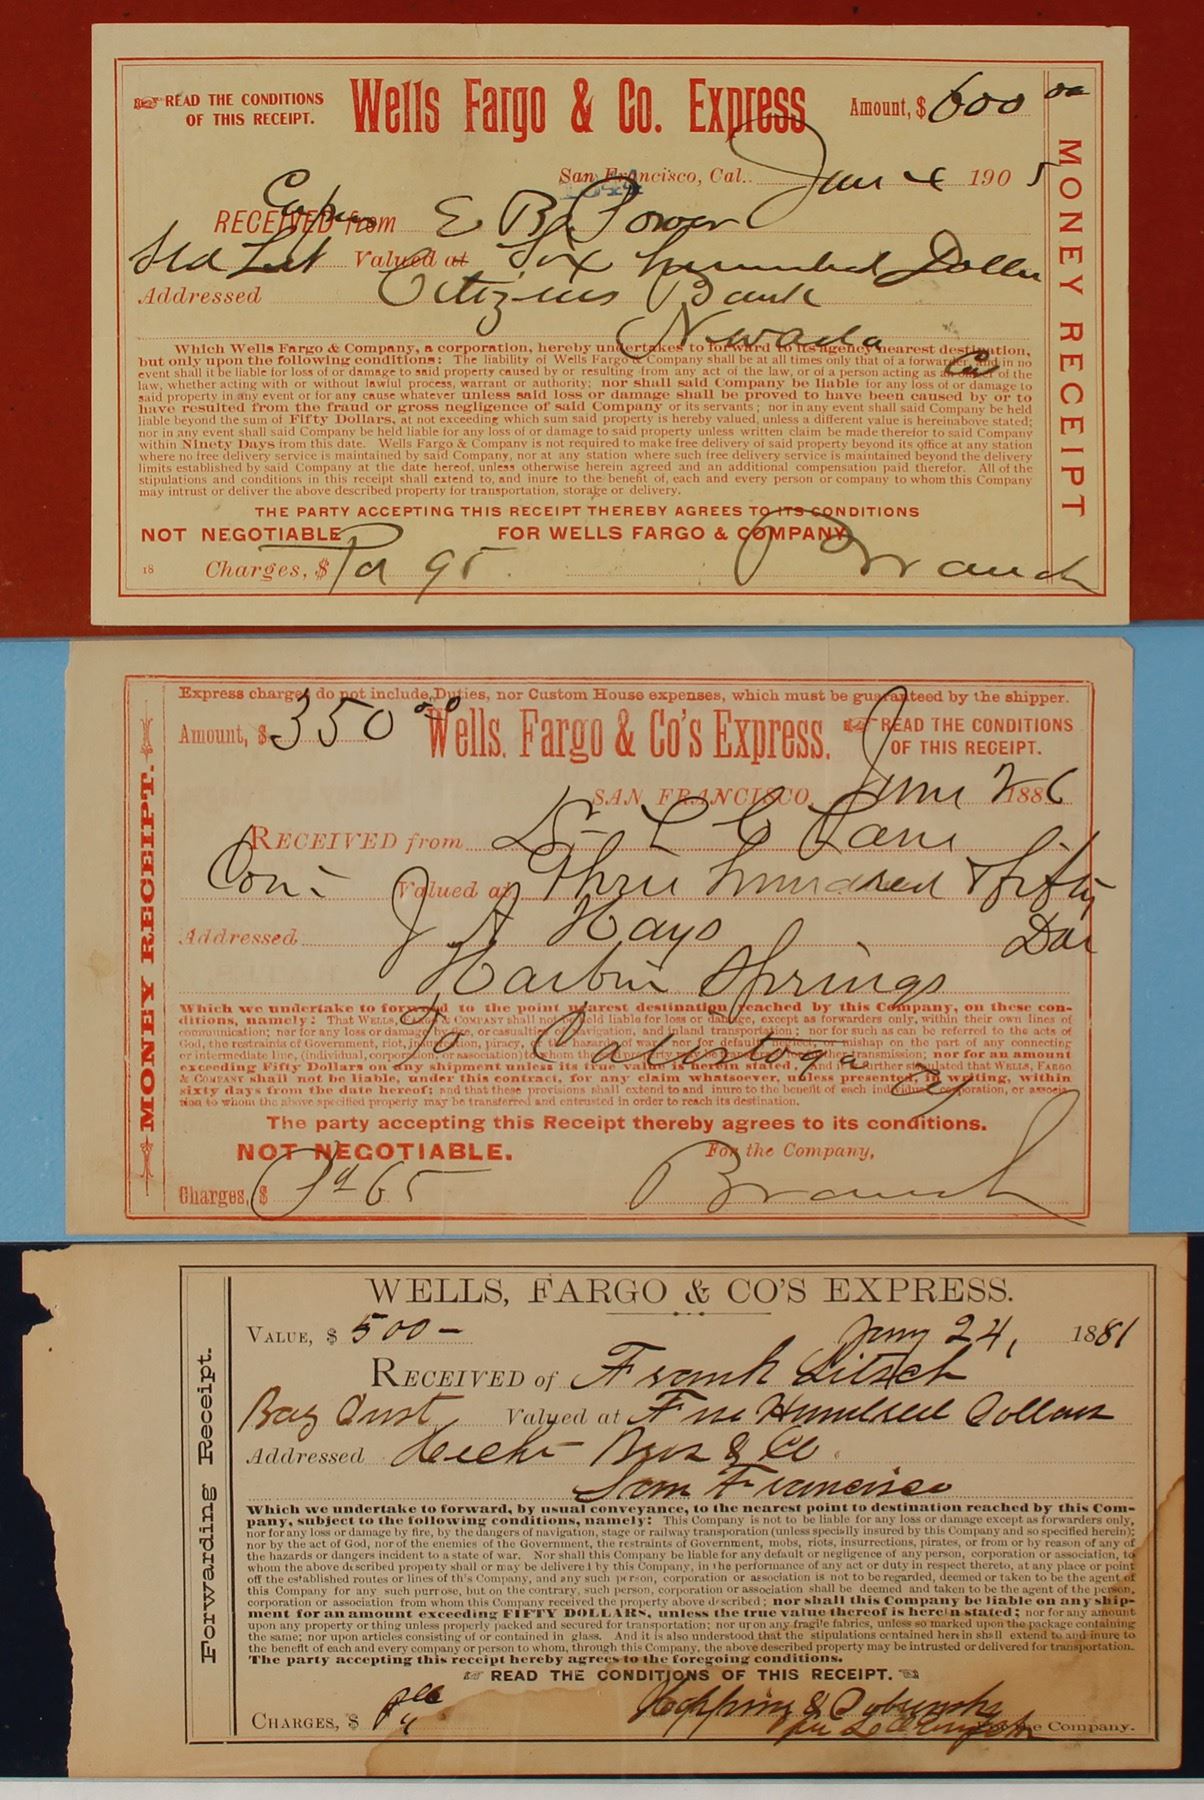 READ THE CONDITIONS
OF THIS RECEIPT.
Wells Fargo & Co. Express
Amount, $ 600 00
San Francisco, Cal. Jan 4 1905
RECEIVED from E B Power
Sld Valued at Six hundred Dollars
Addressed Citizens Bank
Nevada
Which Wells Fargo & Company, a corporation, hereby undertakes to forward to its agency nearest destination,
but only upon the following conditions: The liability of Wells Fargo & Company shall be at all times only that of a forwarder, and in no
event shall it be liable for loss of or damage to said property caused by or resulting from any act of the law, or of a person acting as an officer of the
law, whether acting with or without lawful process, warrant or authority; nor shall said Company be liable for any loss of or damage to
said property in any event or for any cause whatever unless said loss or damage shall be proved to have been caused by or to
have resulted from the fraud or gross negligence of said Company or its servants; nor in any event shall said Company be held
liable beyond the sum of Fifty Dollars, at not exceeding which sum said property is hereby valued, unless a different value is hereinabove stated;
nor in any event shall said Company be held liable for any loss of or damage to said property unless written claim be made therefor to said Company
within Ninety Days from this date. Wells Fargo & Company is not required to make free delivery of said property beyond its office at any station
where no free delivery service is maintained by said Company, nor at any station where such free delivery service is maintained beyond the delivery
limits established by said Company at the date hereof, unless otherwise herein agreed and an additional compensation paid therefor. All of the
stipulations and conditions in this receipt shall extend to, and inure to the benefit of, each and every person or company to whom this Company
may intrust or deliver the above described property for transportation, storage or delivery.
THE PARTY ACCEPTING THIS RECEIPT THEREBY AGREES TO ITS CONDITIONS
NOT NEGOTIABLE FOR WELLS FARGO & COMPANY
18 Charges, $ Pd 95 Branch
MONEY RECEIPT
Express charges do not include Duties, nor Custom House expenses, which must be guaranteed by the shipper.
Amount, $ 350 00
Wells, Fargo & Co's Express.
READ THE CONDITIONS
OF THIS RECEIPT.
SAN FRANCISCO, June 2 1886
RECEIVED from Dr L C Lane
Coin Valued at Three hundred & fifty
Addressed J A Hays Dol
Harbin Springs
Which we undertake to forward to the point nearest destination reached by this Company, on these con-
ditions, namely: That WELLS, FARGO & COMPANY shall not be held liable for loss or damage, except as forwarders only, within their own lines of
communication; nor for any loss or damage by fire, or casualties of navigation, and inland transportation; nor for such as can be referred to the acts of
God, the restraints of Government, riot, insurrection, piracy, or the hazards of war; nor for default, neglect, or mishap on the part of any connecting
or intermediate line, (individual, corporation, or association) to whom the property may be transferred for further transmission; nor for an amount
exceeding Fifty Dollars on any shipment unless its true value is herein stated. And it is further stipulated that WELLS, FARGO
& COMPANY shall not be liable, under this contract, for any claim whatsoever, unless presented, in writing, within
sixty days from the date hereof; and that these provisions shall extend to and inure to the benefit of each individual, corporation, or associa-
tion to whom the above specified property may be transferred and entrusted in order to reach its destination.
To Calistoga
The party accepting this Receipt thereby agrees to its conditions.
NOT NEGOTIABLE. For the Company,
Charges, $ Pd 65 Branch
MONEY RECEIPT.
WELLS, FARGO & CO'S EXPRESS.
VALUE, $ 500 – Jany 24, 1881
RECEIVED of Frank Litsch
Bag Dust Valued at Five Hundred Dollars
Addressed Hecht Bros & Co
San Francisco
Which we undertake to forward, by usual conveyance, to the nearest point to destination reached by this Com-
pany, subject to the following conditions, namely: This Company is not to be liable for any loss or damage except as forwarders only,
nor for any loss or damage by fire, by the dangers of navigation, stage or railway transportation (unless specially insured by this Company and so specified herein);
nor by the act of God, nor of the enemies of the Government, the restraints of Government, mobs, riots, insurrections, pirates, or from or by reason of any of
the hazards or dangers incident to a state of war. Nor shall this Company be liable for any default or negligence of any person, corporation or association, to
whom the above described property shall or may be delivered by this Company, in the performance of any act or duty in respect thereto, at any place or point
off the established routes or lines of this Company, and any such person, corporation or association is not to be regarded, deemed or taken to be the agent of
this Company for any such purpose, but on the contrary, such person, corporation or association shall be deemed and taken to be the agent of the person,
corporation or association from whom this Company received the property above described; nor shall this Company be liable on any ship-
ment for an amount exceeding FIFTY DOLLARS, unless the true value thereof is herein stated; nor for any amount
upon any property or thing unless properly packed and secured for transportation; nor upon any fragile fabrics, unless so marked upon the package containing
the same; nor upon articles consisting of or contained in glass. And it is also understood that the stipulations contained herein shall extend to and inure to
the benefit of each and every company or person to whom, through this Company, the above described property may be intrusted or delivered for transportation.
The party accepting this receipt hereby agrees to the foregoing conditions.
READ THE CONDITIONS OF THIS RECEIPT.
CHARGES, $
For the Company.
Forwarding Receipt.